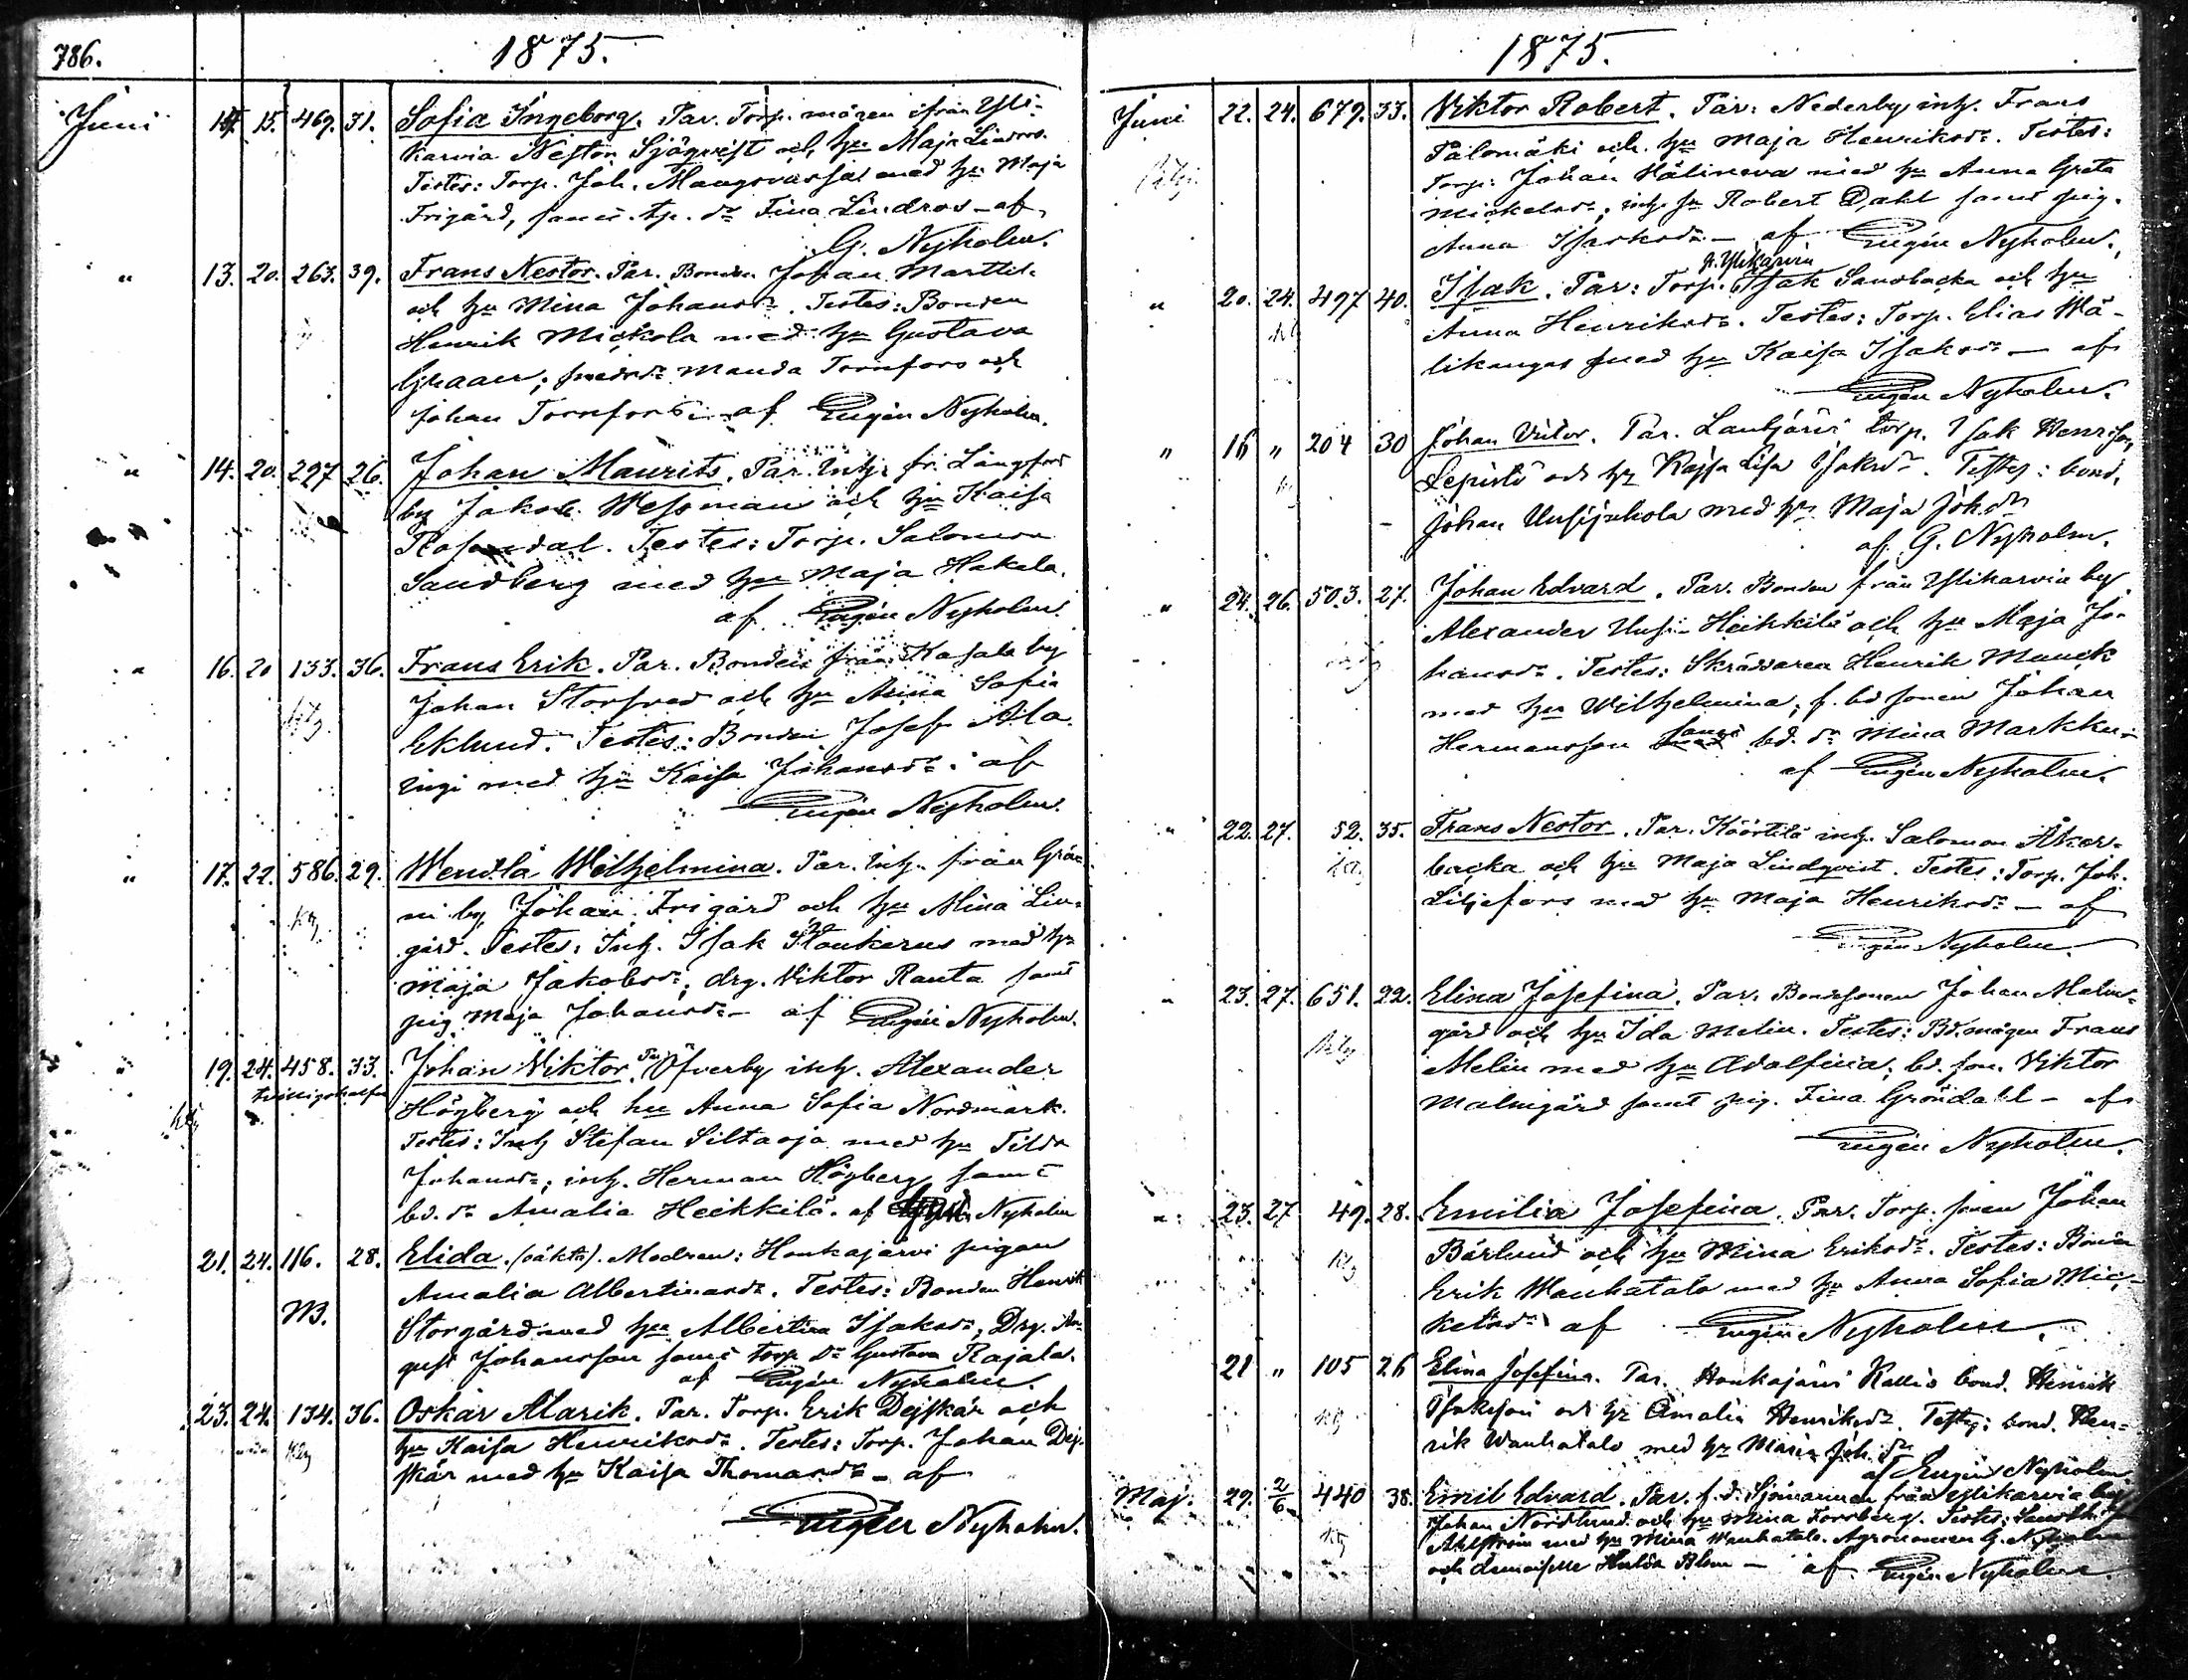 786.
1875.
Juni 14. 15. 469. 31. Sofia Ingeborg. Par. Torp. mågen ifrån Ysti-
karvia Nestor Sjöqvist och hu Maja Lindros.
Testes: Torp. Joh. med hu Maja
Frigård, samt tp. dr Fina Lindros – af
G. Nyholm.
" 13. 20. 263. 39. Frans Nestor. Par. Bonden Johan Marttil
och hu Mina Johansdr. Testes: Bonden
Henrik Mickola med hu Gustava
Graan; Manda Tornfors och
Johan Tornfors – af Eugén Nyholm.
" 14. 20. 297 26. Johan Maurits. Par. Inh. fr. Långfors
by Jakob Wessman och hu Kaisa
Rosendal. Testes: Torp. Salomon
Sandberg med hu Maja Hakala.
af Eugén Nyholm.
" 16. 20 133. 36. Frans Erik. Par. Bonden från Kasala by
Johan Storfred och hu Mina Sofia
Eklund. Testes: Bonden Josef Ala
ingi med hu Kaisa Johansdr – af
Eugén Nyholm.
" 17. 22. 586. 29. Wendla Wilhelmina. Par. Inh. från Grän
ni by Johan Frigård och hu Mina Lin-
gård. Testes: Inh. Isak med hu
Maja Jakobsdr; drg. Viktor Ranta samt
pig. Maja Johansdr – af Eugén Nyholm.
" 19. 24. 458. 33. Johan Viktor. Par. Öfverby inh. Alexander
Högberg och hu Anna Sofia Nordmark.
Testes: Inh Stefan Siltaoja med hu Tilda
Johansdr; inh. Herman Högberg samt
bd. dr Amalia Heikkilä. af Nyholm
21. 24. 116. 28. Elida. (oäkta). Modren: Honkajärvi pigan
Amalia Albertinasdr. Testes: Bonden Henrik
NB. Storgård med hu Albertina Isaksdr; Drg. Au-
gust Johansson samt torp dr Gustava Rajala.
af Eugén Nyholm.
23. 24. 134. 36. Oskar Alarik. Par. Torp. Erik Dejskär och
hu Kaisa Henriksdr. Testes: Torp. Johan Dej-
skär med hu Kaisa Thomasdr – af
Eugén Nyholm.
1875.
Juni 22. 24. 679. 33. Viktor Robert. Par: Nederby inh. Frans
Palomäki och hu Maja Henriksdr. Testes:
Torp: Johan Hälineva med hu Anna Greta
Mickelsdr; inh. sn Robert Dahl samt pig.
Anna Isaksdr – af Eugén Nyholm.
fr. Ystikarvia
" 20. 24. 497 40. Isak. Par: Torp. Isak Sandbacka och hu
Anna Henriksdr. Testes: Torp. Elias Wä-
likangas med hu Kaisa Isaksdr – af
Eugén Nyholm.
" 16 " 204 30 Johan Victor. Par. Lautjärvi torp. Isak Henrikss.
Lepistö och hu Kajsa Lisa Isaksdr. Testes: bond.
Johan Uusijuhola med hu Maja Joh.dr
af G. Nyholm.
" 24. 26. 503. 27. Johan Edvard. Par. Bonden från Ystikarvia by
Alexander Uusi-Heikkilä och hu Maja Jo-
hansdr. Testes: Skräddaren Henrik Munck
med hu Wilhelmina; f. bd sonen Johan
Hermansson samt bd. dr Mina Markku
af Eugén Nyholm.
" 22. 27. 52. 35. Frans Nestor. Par. Köörtilä inh. Salomon Åker-
backa och hu Maja Lindqvist. Testes: Torp. Joh.
Liljefors med hu Maja Henriksdr – af
Eugén Nyholm.
" 23. 27. 651. 22. Elina Josefina. Par. Bondesonen Johan Malm-
gård och hu Ida Melin. Testes: Bd.mågen Frans
Melin med hu Adolfina; bd. son. Viktor
Malmgård samt pig. Fina Gröndahl – af
Eugén Nyholm.
" 23. 27 49. 28. Emilia Josefina. Par. Torp. sonen Johan
Bärlund och hu Mina Eriksdr. Testes: Bonden
Erik Wanhatalo med hu Anna Sofia Mic-
kelsdr af Eugén Nyholm.
21 " 105 26 Elina Josefina. Par. Honkajärvi Kallio bond. Henrik
Isaksson och hu Amalia Henriksdr. Testes: bond. Hen-
rik Wanhatalo med hu Maria Joh.dr
af Eugén Nyholm.
Maj. 29. 2/6 440 38. Emil Edvard. Par. f.d. Sjömannen från Ystikarvia by
Johan Nordlund och hu Mina Forsberg. Testes:
Ahlström med hu Mina Wanhatalo. Agronomen G. Nyholm
och demoiselle Hulda Blom – af Eugén Nyholm